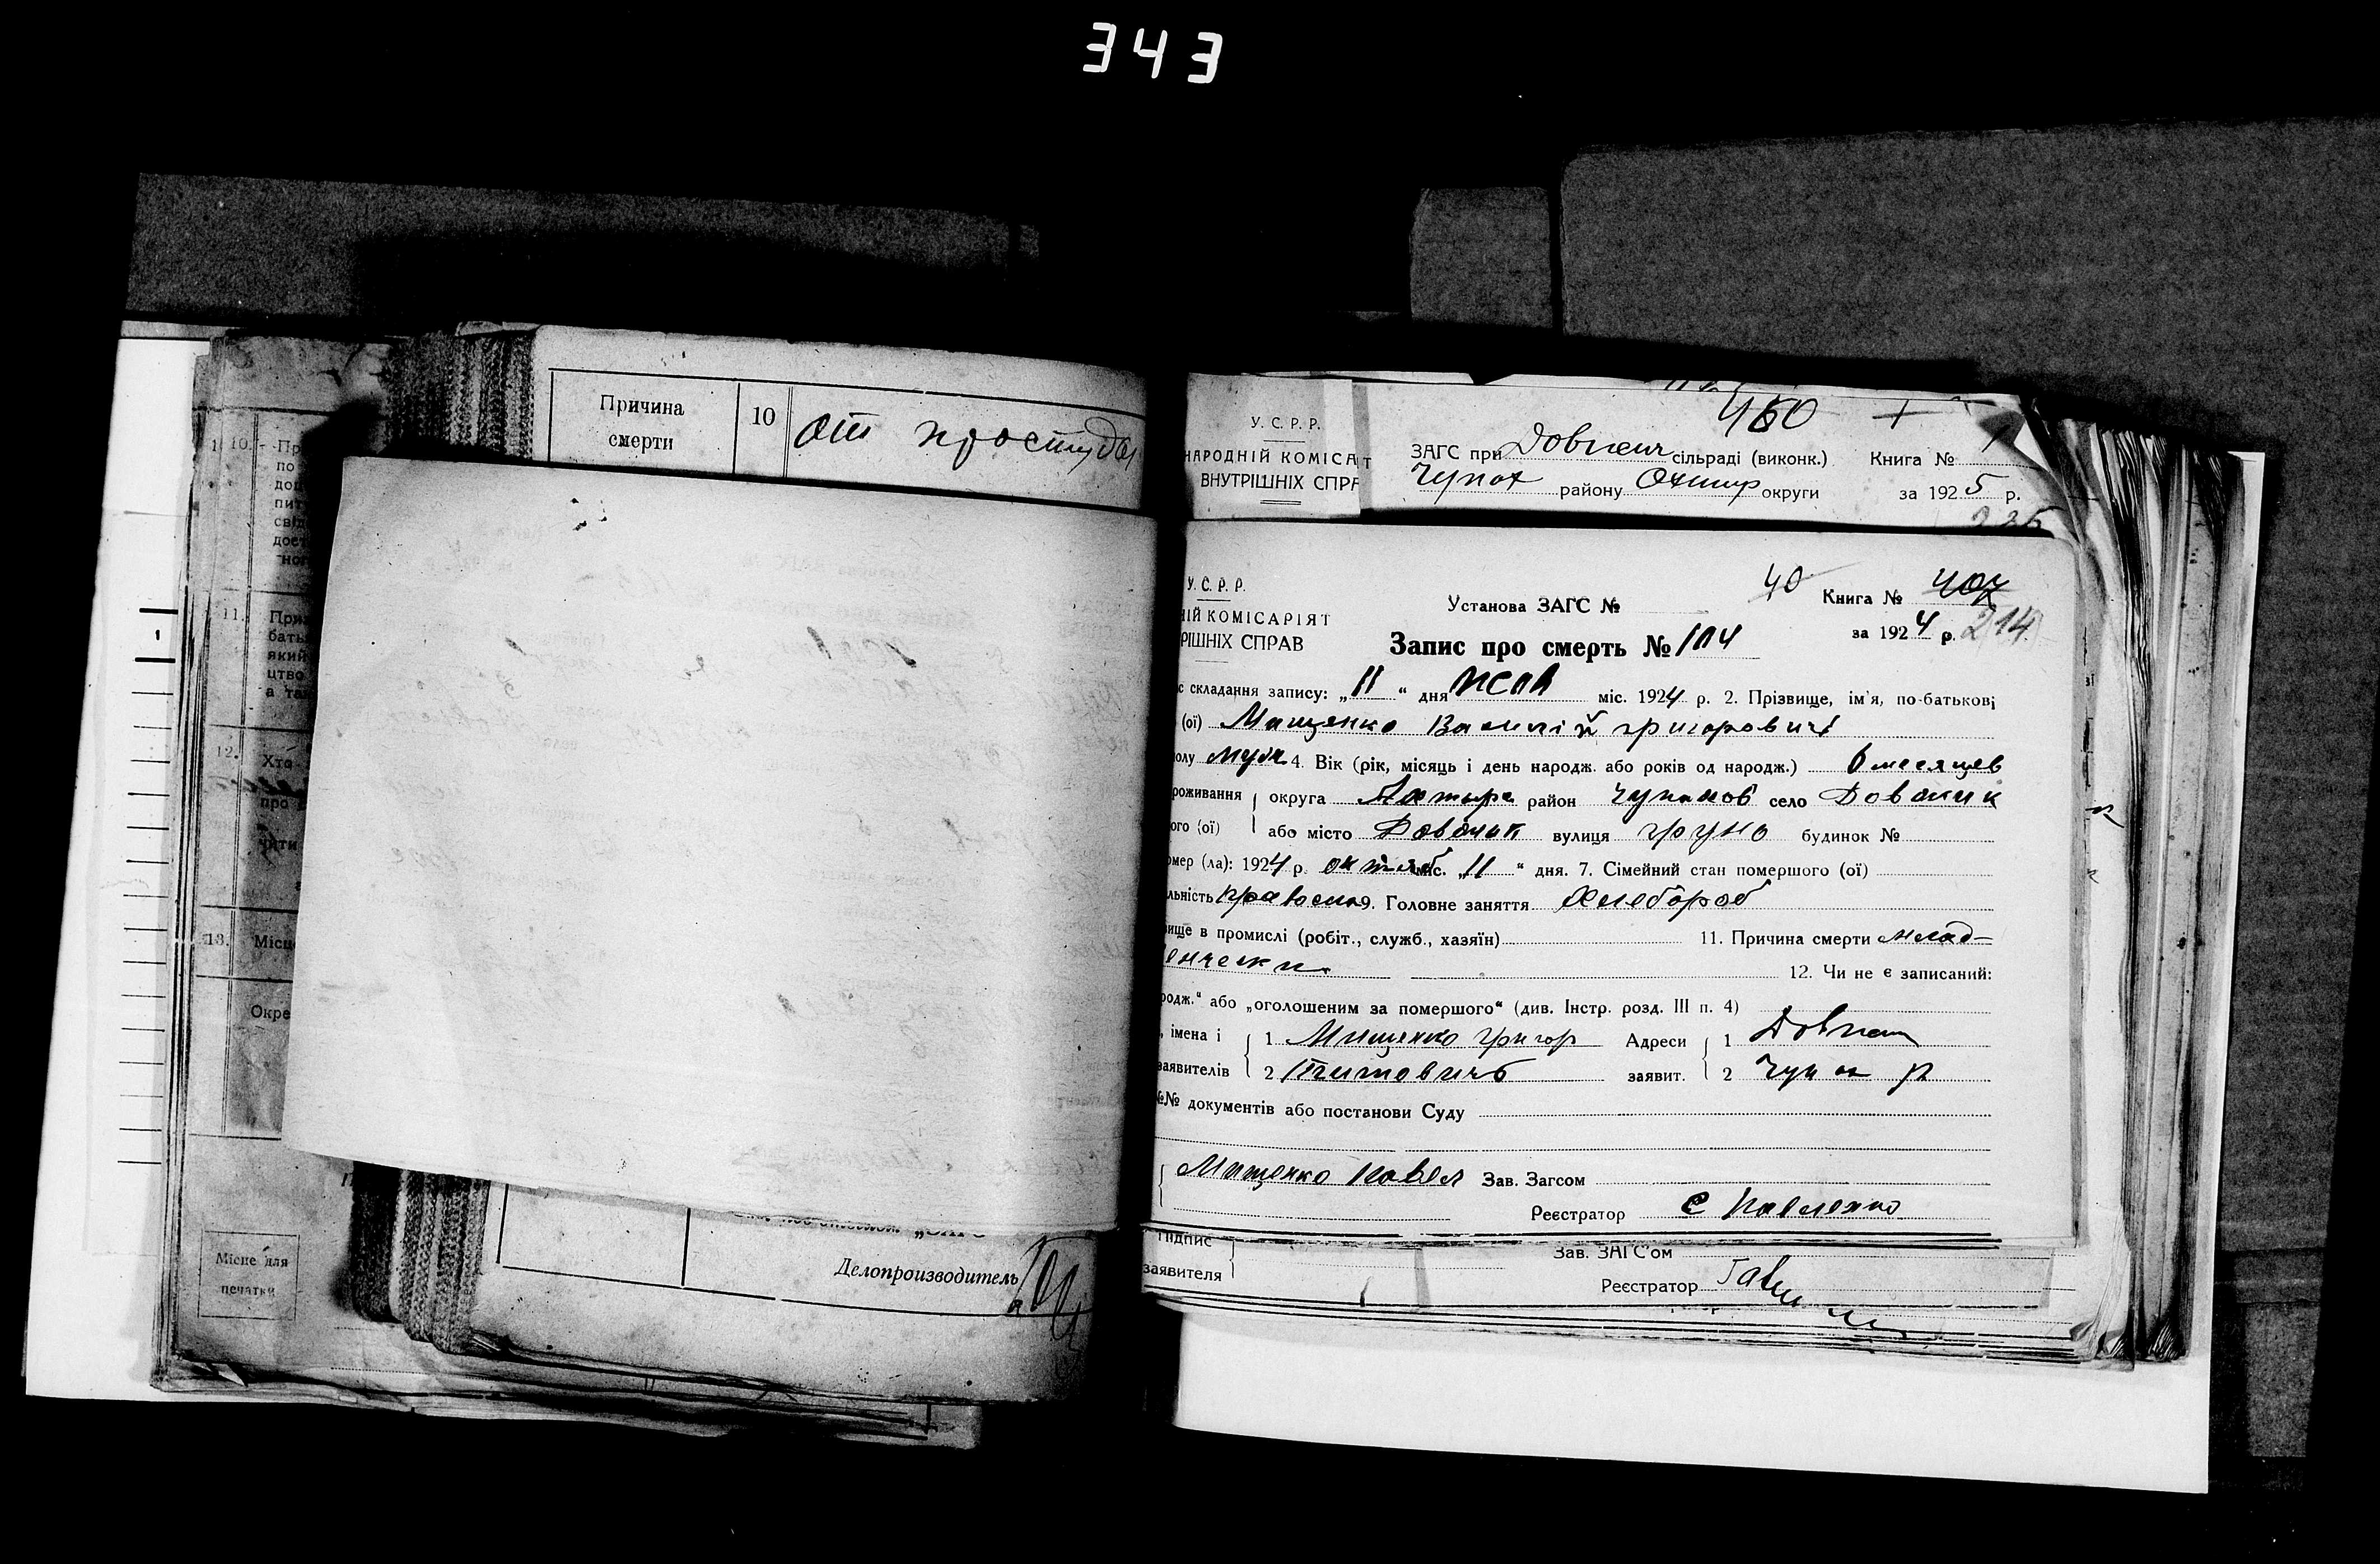 343
10.
Пр
по
пит
11.
бать
який
цтво
12.
Хто
про
13.
Місц
Окре
Місце для
печатки
Причина
смерти
10
От простуды
Делопроизводитель
У. С. Р. Р.
НАРОДНІЙ КОМІСАТ
ВНУТРІШНІХ СПРА
450
ЗАГС при сільраді (виконк.) Книга № 1
Чупах району Охтир округи за 1925 р.
225
У. С. Р. Р.
ІЙ КОМІСАРІЯТ
РІШНІХ СПРАВ
Установа ЗАГС № 40 Книга № 407
за 1924 р. 214
Запис про смерть № 104
с складання запису: „11“ дня міс. 1924 р. 2. Прізвище, ім'я, по-батькові
(ої) Мищенко Василий Григорович
олу муж 4. Вік (рік, місяць і день народж. або років од народж.) месяцев
роживання округа Ахтыр район Чупахов село Довжик
ого (ої) або місто Довжик вулиця будинок №
мер (ла): 1924 р. октяб міс. „11“ дня. 7. Сімейний стан помершого (ої)
льність 9. Головне заняття Хлебороб
ище в промислі (робіт., служб., хазяїн) 11. Причина смерти млад-
енчески
12. Чи не є записаний:
родж.“ або „оголошеним за помершого“ (див. Інстр. розд. III п. 4)
, імена і 1 Мищенко Григор Адреси 1
заявителів 2 Титовичъ заявит. 2 Чупах р
№№ документів або постанови Суду
Мищенко Павел Зав. Загсом
Реєстратор С Павленко
Підпис
заявителя
Зав. ЗАГС'ом
Реєстратор